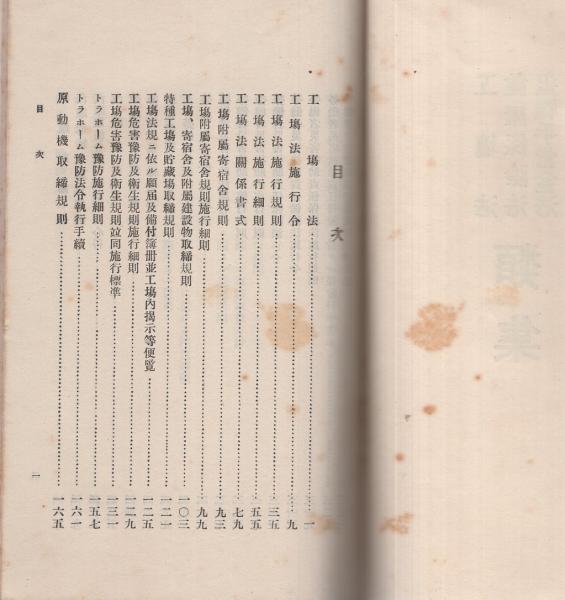 目次
工塲法……一
工塲法施行令……九
工塲法施行規則……三五
工塲法施行細則……五五
工塲法關係書式……七九
工塲附屬寄宿舍規則……九三
工塲附屬寄宿舍規則施行細則……九九
工塲、寄宿舍及附屬建設物取締規則……一〇三
特種工塲及貯藏塲取締規則……一二一
工塲法規ニ依ル願屆及備付簿册並工塲內揭示等便覽……一二五
工塲危害豫防及衞生規則施行細則……一二九
工塲危害豫防及衞生規則竝同施行標準……一三一
トラホーム豫防施行細則……一五七
トラホーム豫防法令執行手續……一六一
原動機取締規則……一六五
目次
一